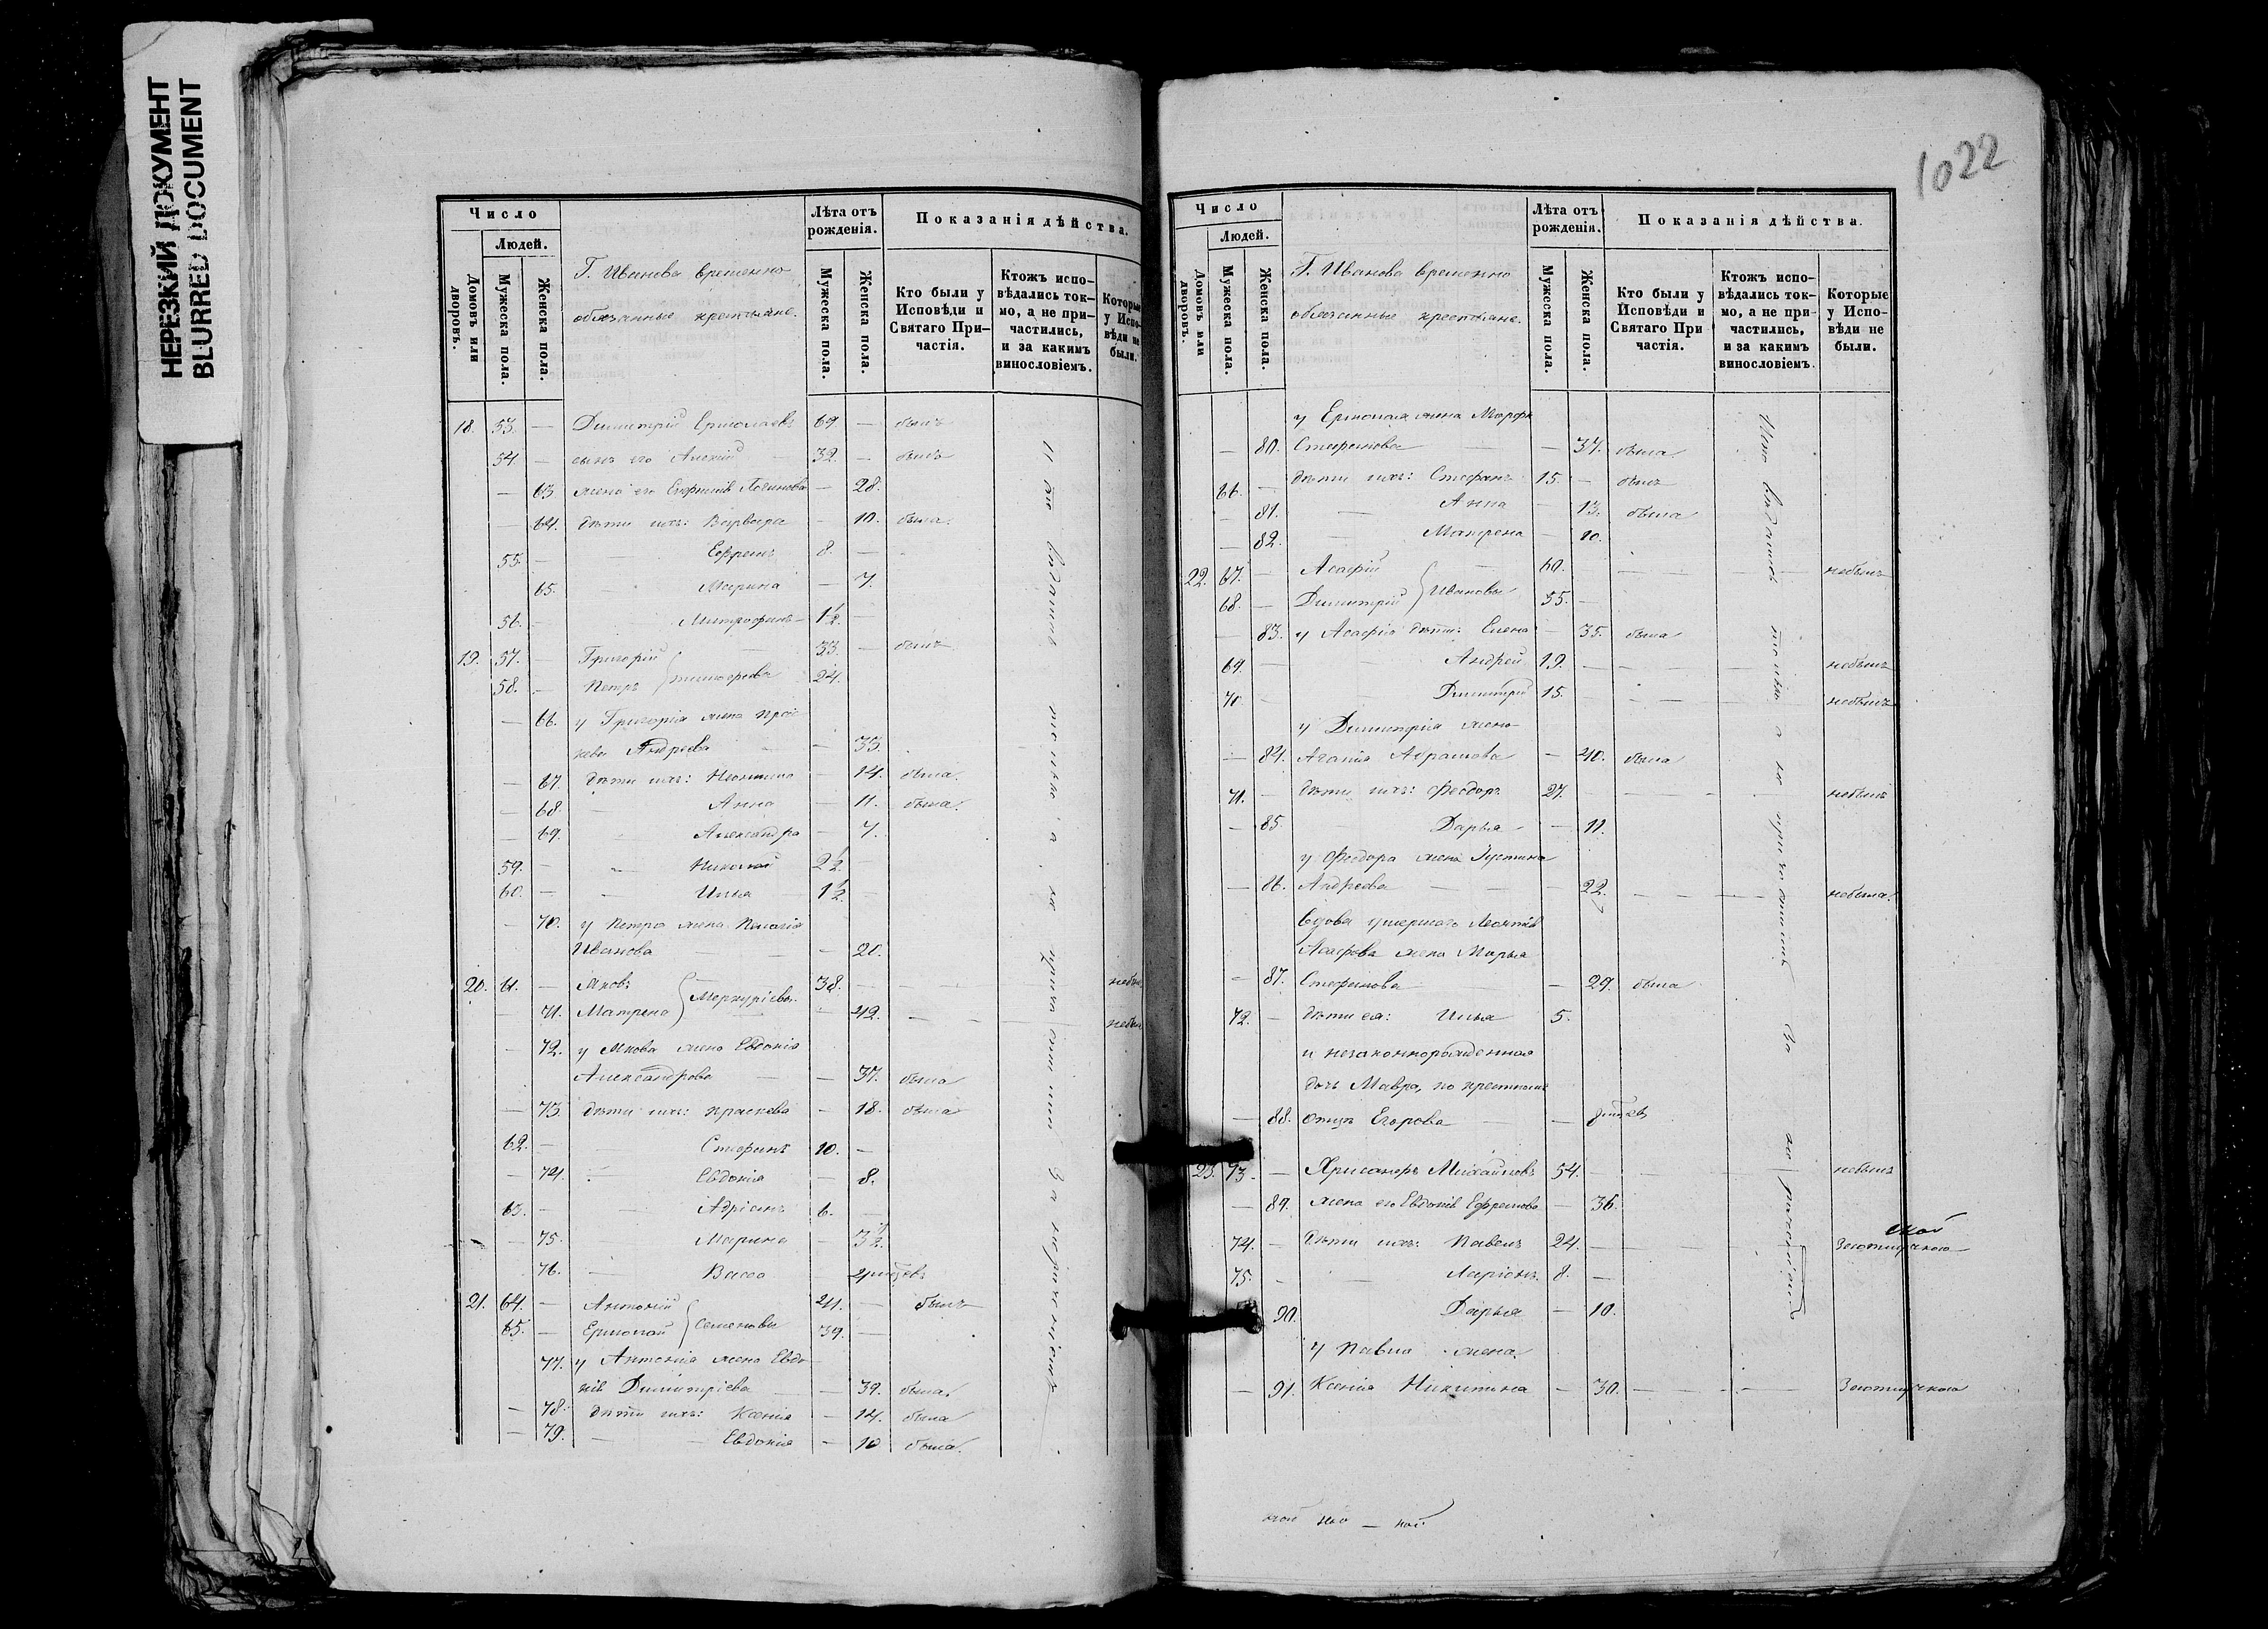 НЕРЕЗКИЙ ДОКУМЕНТ
BLURRED DOCUMENT
Число
Людей.
Домовъ или дворовъ.
Мужеска пола.
Женска пола.
Г. Иванова временно
обязанные крестьяне.
Лѣта отъ рожденія.
Мужеска пола.
Женска пола.
Показанія дѣйства.
Кто были у Исповѣди и Святаго При-частія.
Ктожъ испо-вѣдались ток-мо, а не при-частились, и за какимъ винословіемъ.
Которые у Испо-вѣди не были.
18. 53. — Димитрій Ермолаевъ 69. — былъ
54. — сынъ его Алексій 32. — былъ
— 63 жена его Логинова — 28.
— 64. дѣти ихъ: Варвара — 10. была.
55. — Ефремъ 8. —
65. Марина — 7.
56. — Митрофанъ 1½. —
19. 57. — Григорій 33. — былъ
58. — Петръ Тимофеевы 24.
— 66. у Григорія жена Прас-
кева Андреева — 35.
— 67. дѣти ихъ: — 14. была.
— 68. Анна — 11. была.
— 69. Александра — 7.
59. — Николай 2½ —
60. — Илья 1½ —
— 70. у Петра жена Пелагія
Иванова — 20.
20. 61. — Яковъ 38. —
— 71. Матрена Меркуріевы — 42. —
— 72. у Якова жена Евдокія
Александрова — 37. была
— 73. дѣти ихъ: Праскева — 18. была
62. — Стефанъ 10. —
— 74. Евдокія — 8.
63. — Адріанъ 6. —
— 75. Марина — 3½.
76. — Васса
21. 64. — Антоній 41. — былъ
65. — Ермолай Семеновы 39. —
77. у Антонія жена Евдо-
кія Димитріева — 39. была.
— 78. дѣти ихъ: Ксенія — 14. была
— 79. — Евдокія — 10 была.
1022
Число
Людей.
Домовъ или дворовъ.
Мужеска пола.
Женска пола.
Г. Иванова временно
обязанные крестьяне.
Лѣта отъ рожденія.
Мужеска пола.
Женска пола.
Показанія дѣйства.
Кто были у Исповѣди и Святаго При частія.
Ктожъ испо-вѣдались ток-мо, а не при-частились, и за какимъ винословіемъ.
Которые у Испо-вѣди не были.
у Ермолая жена Марфа
— 80. Стефанова — 37. была.
66. — дѣти ихъ: Стефанъ 15. — былъ
— 81. — Анна — 13. была
— 82. — Матрена — 10.
22. 67. — Асафій 60. — небылъ
68. — Димитрій Ивановы 55. —
— 83. у Асафія дѣти: Елена — 35. была
69. — Андрей 19. — небылъ
70. — Димитрій 15. — небылъ
у Димитрія жена
— 84. Агапія Абрамова — 40. была
71. — дѣти ихъ: Феодоръ 27. — небылъ
— 85. Дарья — 11.
у Феодора жена Іустина
— 86. Андреева — 22. — небыла.
Вдова умершаго Леонтія
Асафова жена Марья
— 87. Стефанова — 29. была
72. — дѣти ея: Илья 5.
и незаконнорожденная
дочь Мавра, по крестному
— 88. отцу Егорова —
23. 73. — Хрисанфъ Михайловъ 54. — небылъ
— 89. жена его Евдокія Ефремова — 36.
74. — дѣти ихъ: Павелъ 24. —
75. — Ларіонъ 8. —
90. Дарья — 10.
у Павла жена
— 91. Ксенія Никитина — 30. —